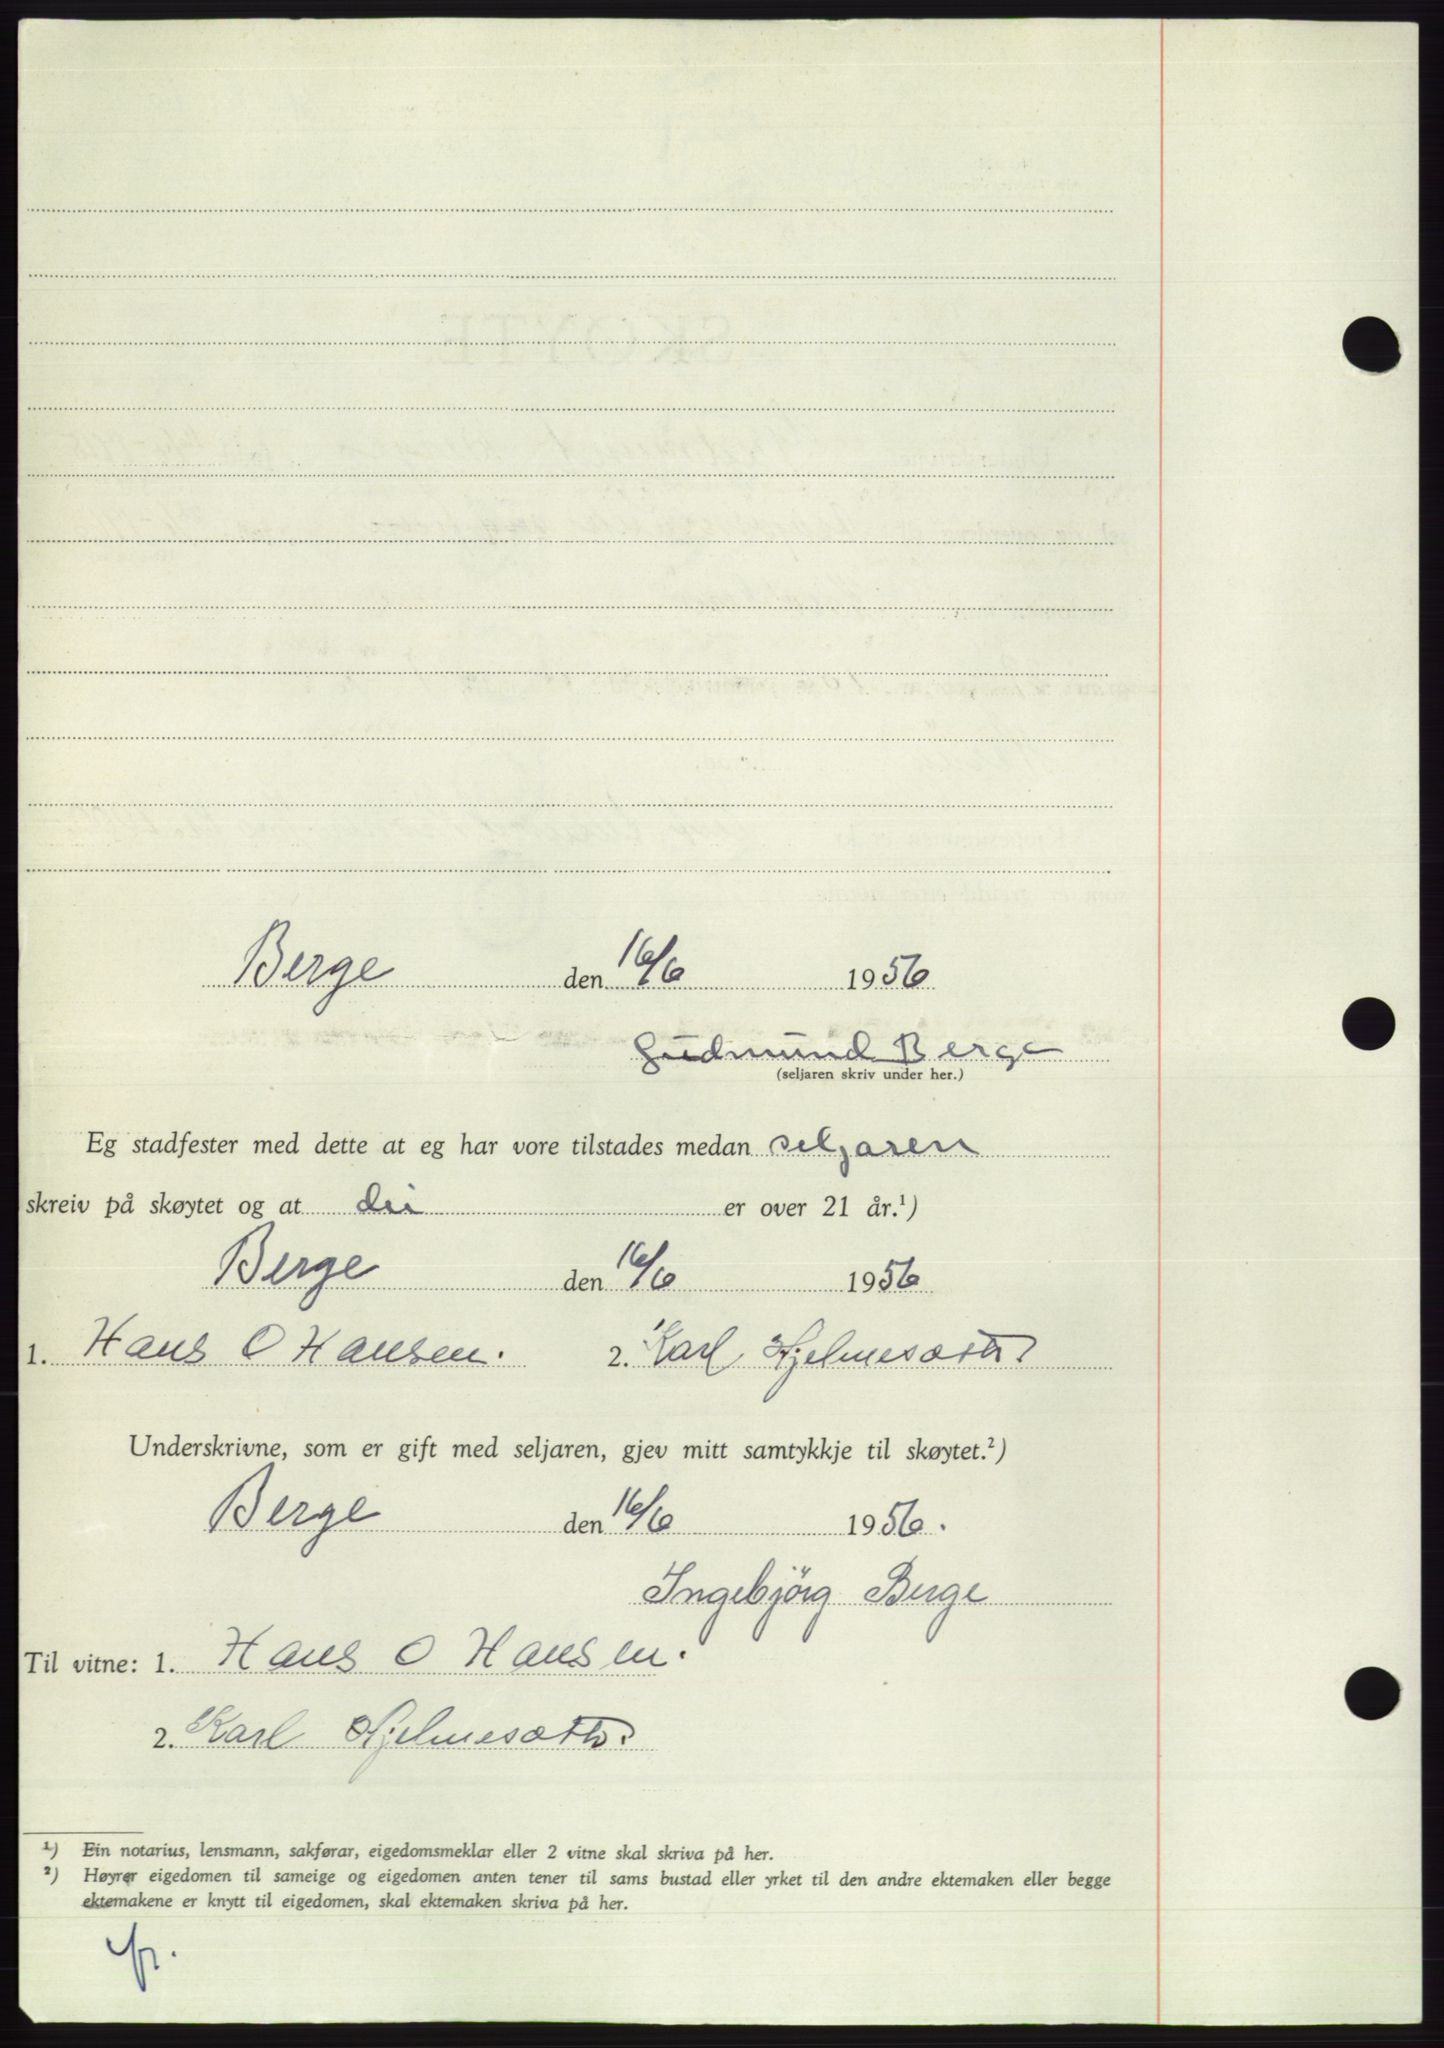 Berge den 16/6 1956
Gudmund Berge
(seljaren skriv under her.)
Eg stadfester med dette at eg har vore tilstades medan seljaren
skreiv på skøytet og at dei er over 21 år.¹)
Berge den 16/6 1956
1. Hans O Hansen. 2. Karl Hjelmesæth.
Underskrivne, som er gift med seljaren, gjev mitt samtykkje til skøytet.²)
Berge den 16/6 1956.
Ingebjörg Berge
Til vitne: 1. Hans O Hansen.
2. Karl Hjelmesæth.
¹) Ein notarius, lensmann, sakførar, eigedomsmeklar eller 2 vitne skal skriva på her.
²) Høyrer eigedomen til sameige og eigedomen anten tener til sams bustad eller yrket til den andre ektemaken eller begge
ektemakene er knytt til eigedomen, skal ektemaken skriva på her.